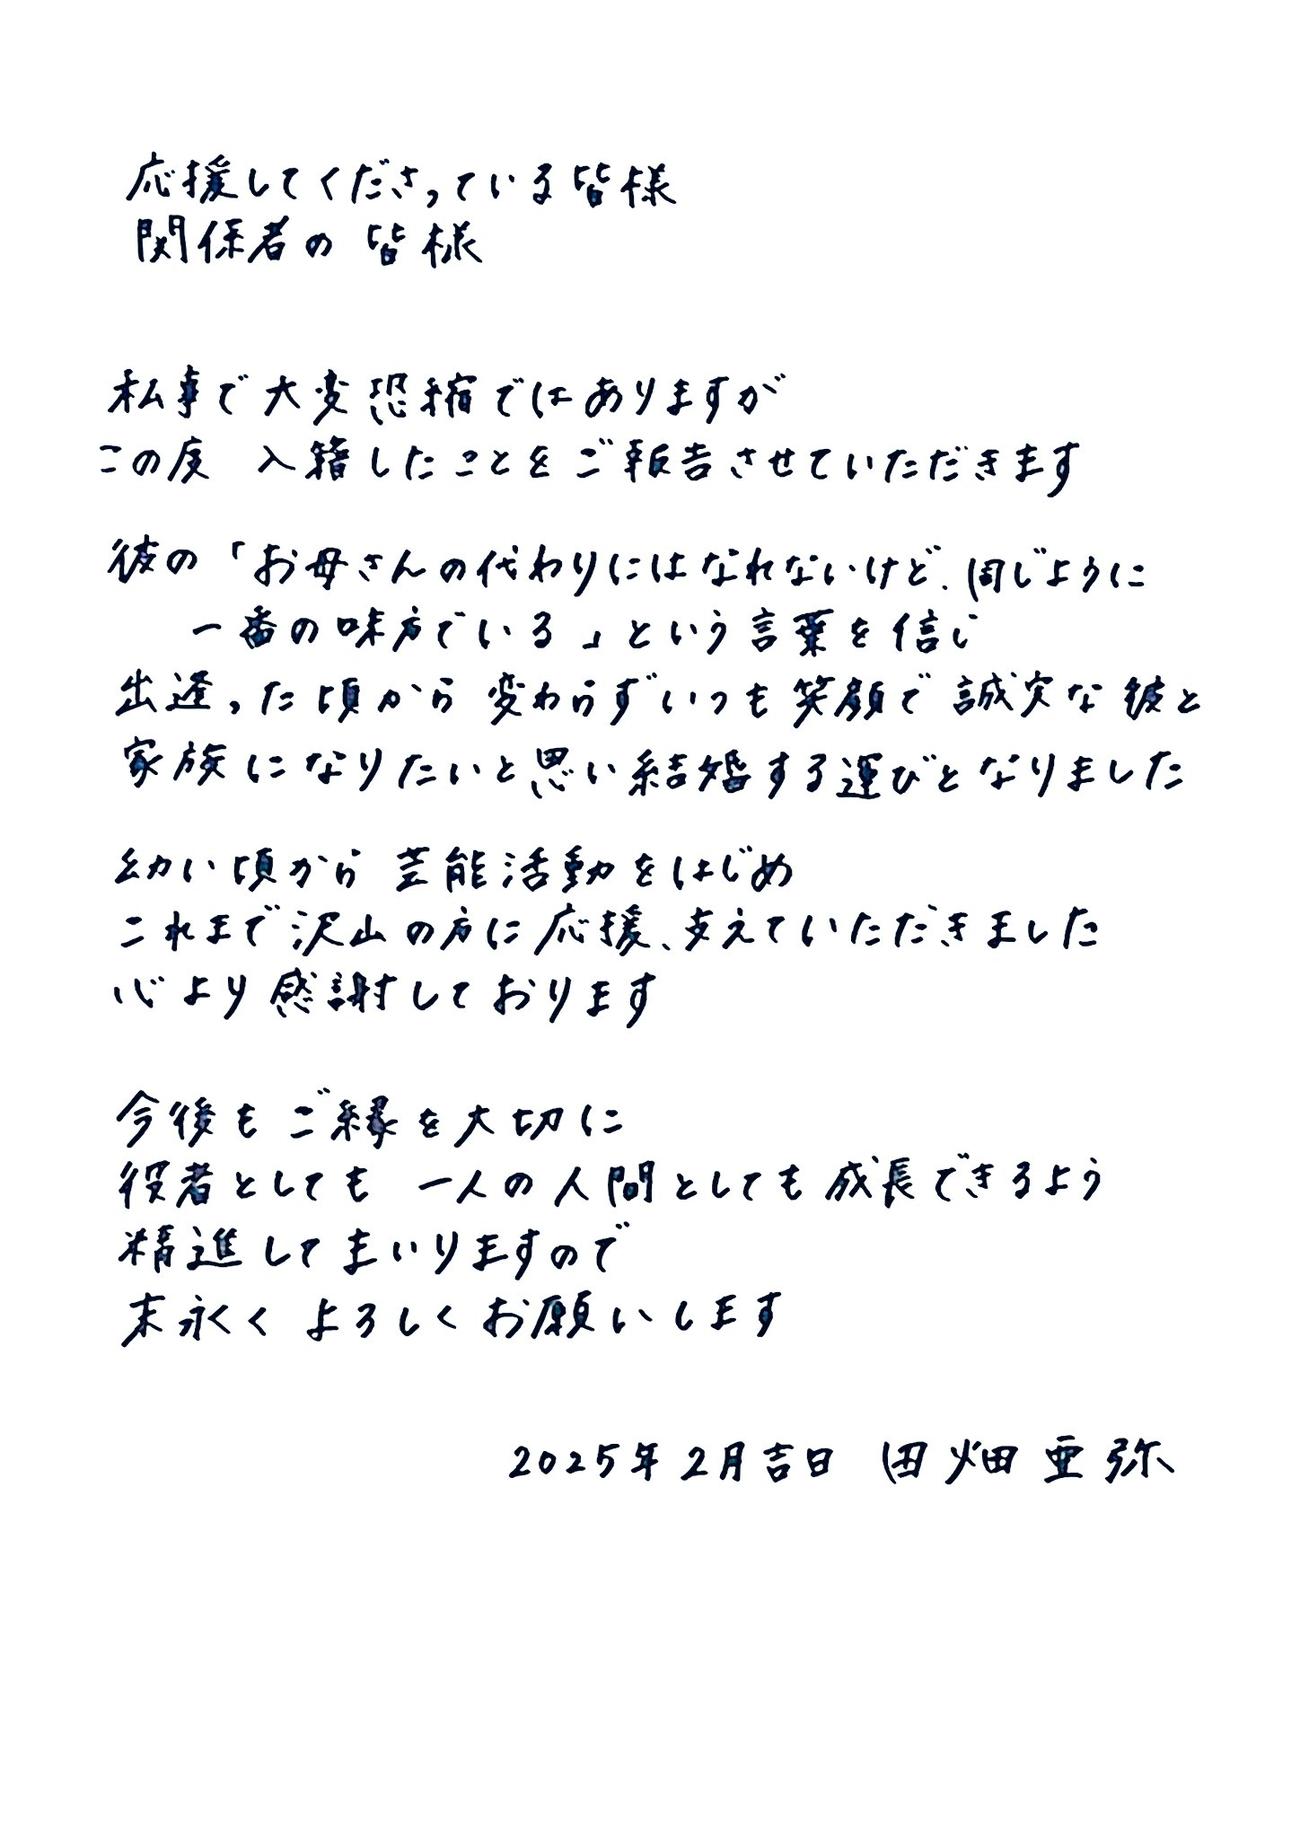 応援してくださっている皆様
関係者の 皆様
私事で大変恐縮ではありますが
この度 入籍したことをご報告させていただきます
彼の「お母さんの代わりにはなれないけど、同じように
一番の味方でいる」という言葉を信じ
出逢った頃から 変わらずいつも笑顔で誠実な彼と
家族になりたいと思い結婚する運びとなりました
幼い頃から 芸能活動をはじめ
これまで沢山の方に応援、支えていただきました
心より感謝しております
今後も ご縁を大切に
役者としても 一人の人間としても成長できるよう
精進してまいりますので
末永く よろしくお願いします
2025年2月吉日 田畑亜弥